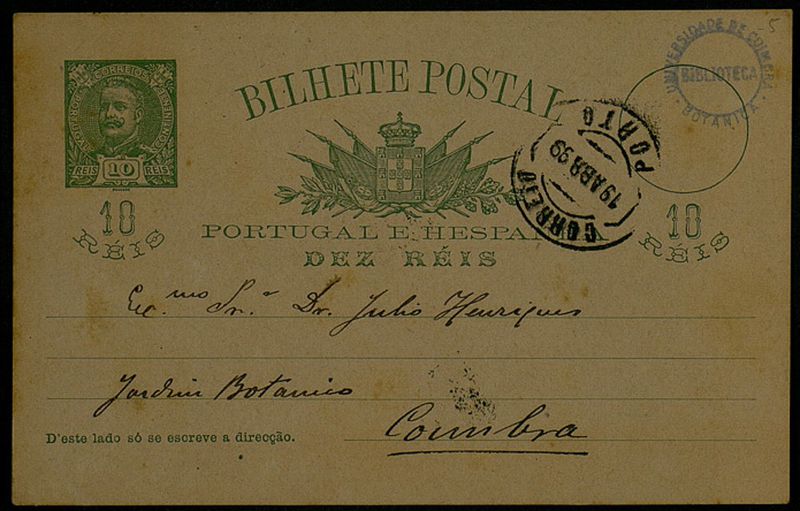 5
UNIVERSIDADE DE COIMBRA
BIBLIOTECA
BOTANICA
CORREIOS
REIS 10 REIS
BILHETE POSTAL
CORREIO
19 ABR 99
PORTO
10
RÉIS
10
RÉIS
PORTUGAL E HESPA
DEZ RÉIS
Exc.mo Sr. Dr. Julio Henriques
Jardim Botanico
Coimbra
D'este lado só se escreve a direcção.